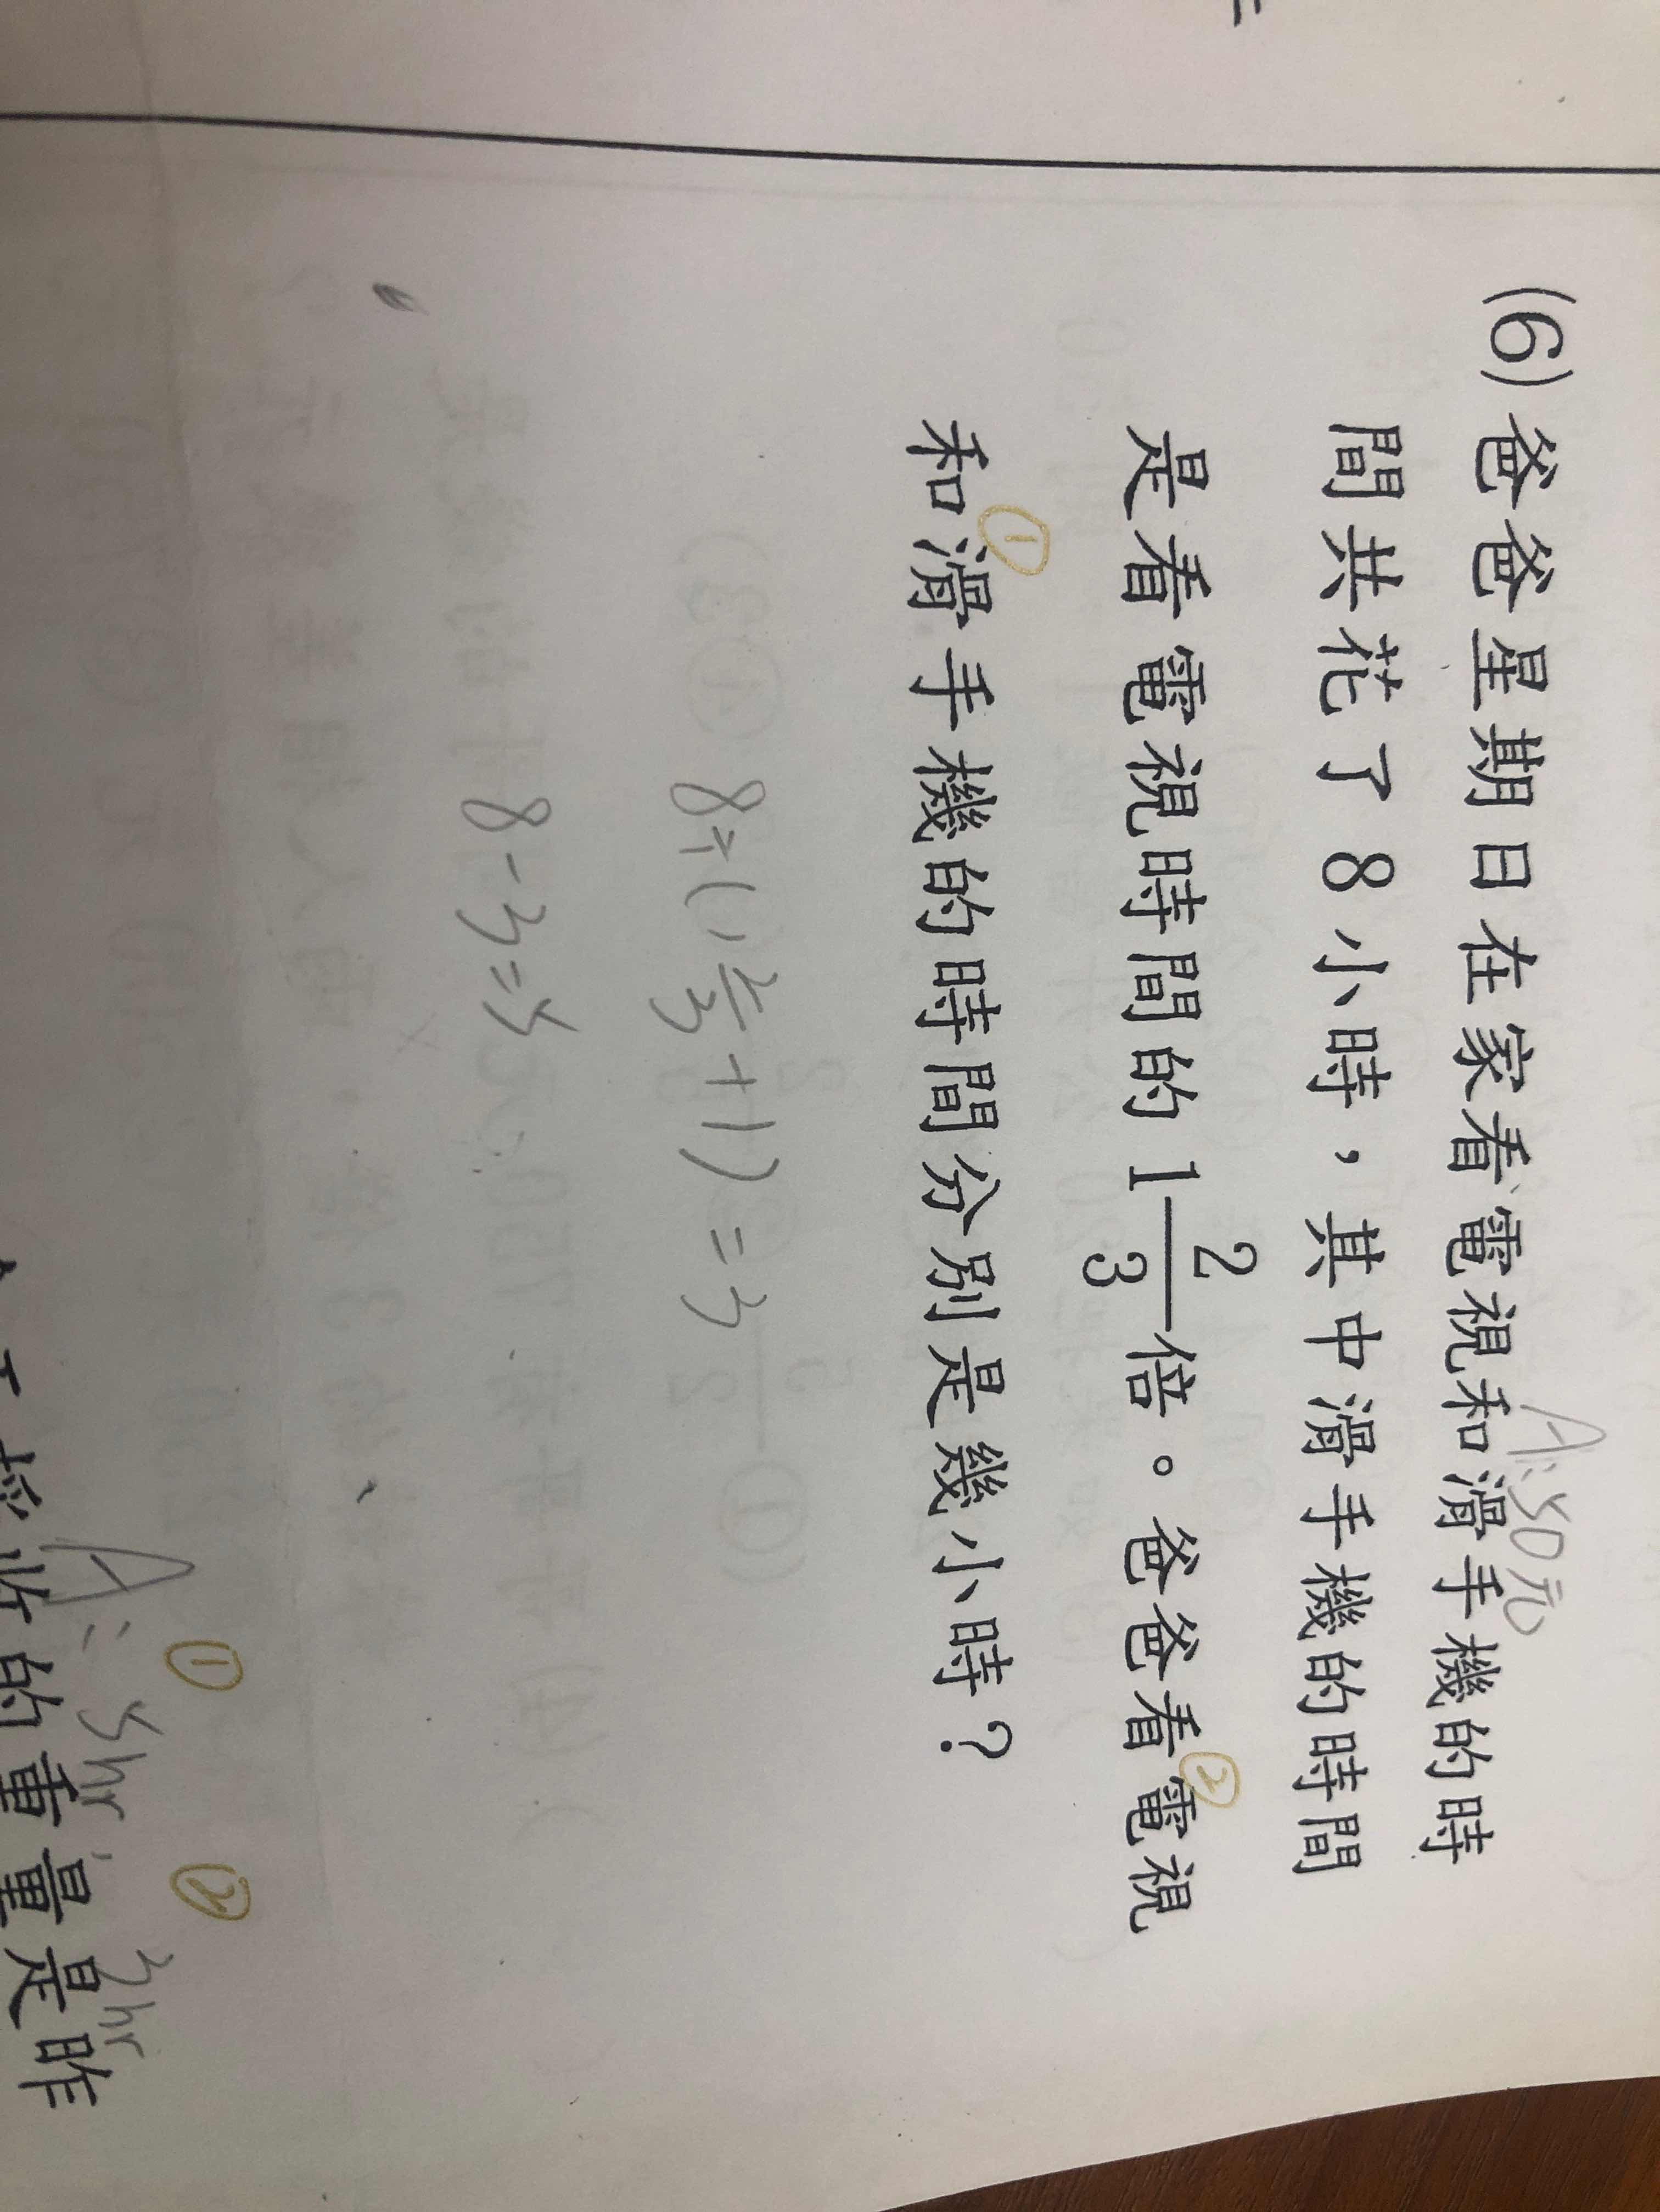 A:50元
(6)爸爸星期日在家看電視和滑手機的時
間共花了8小時，其中滑手機的時間
是看電視時間的1 2/3 倍。爸爸看電視
②
和滑手機的時間分別是幾小時？
①
8÷(1 2/3+1)=3
8-3=5
① ②
A:5hr, 3hr
的重量是昨